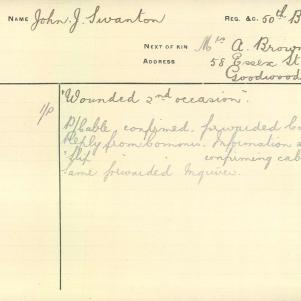 NAME John. J. Swanton REG. &C. 50th B
NEXT OF KIN Mrs A. Brown
ADDRESS 58 Essex St
Goodwood
1/P "Wounded 2nd occasion".
P/Cable confirmed. forwarded
Reply from Comons. Information
"Slip confirming cab
Same forwarded Inquirer.